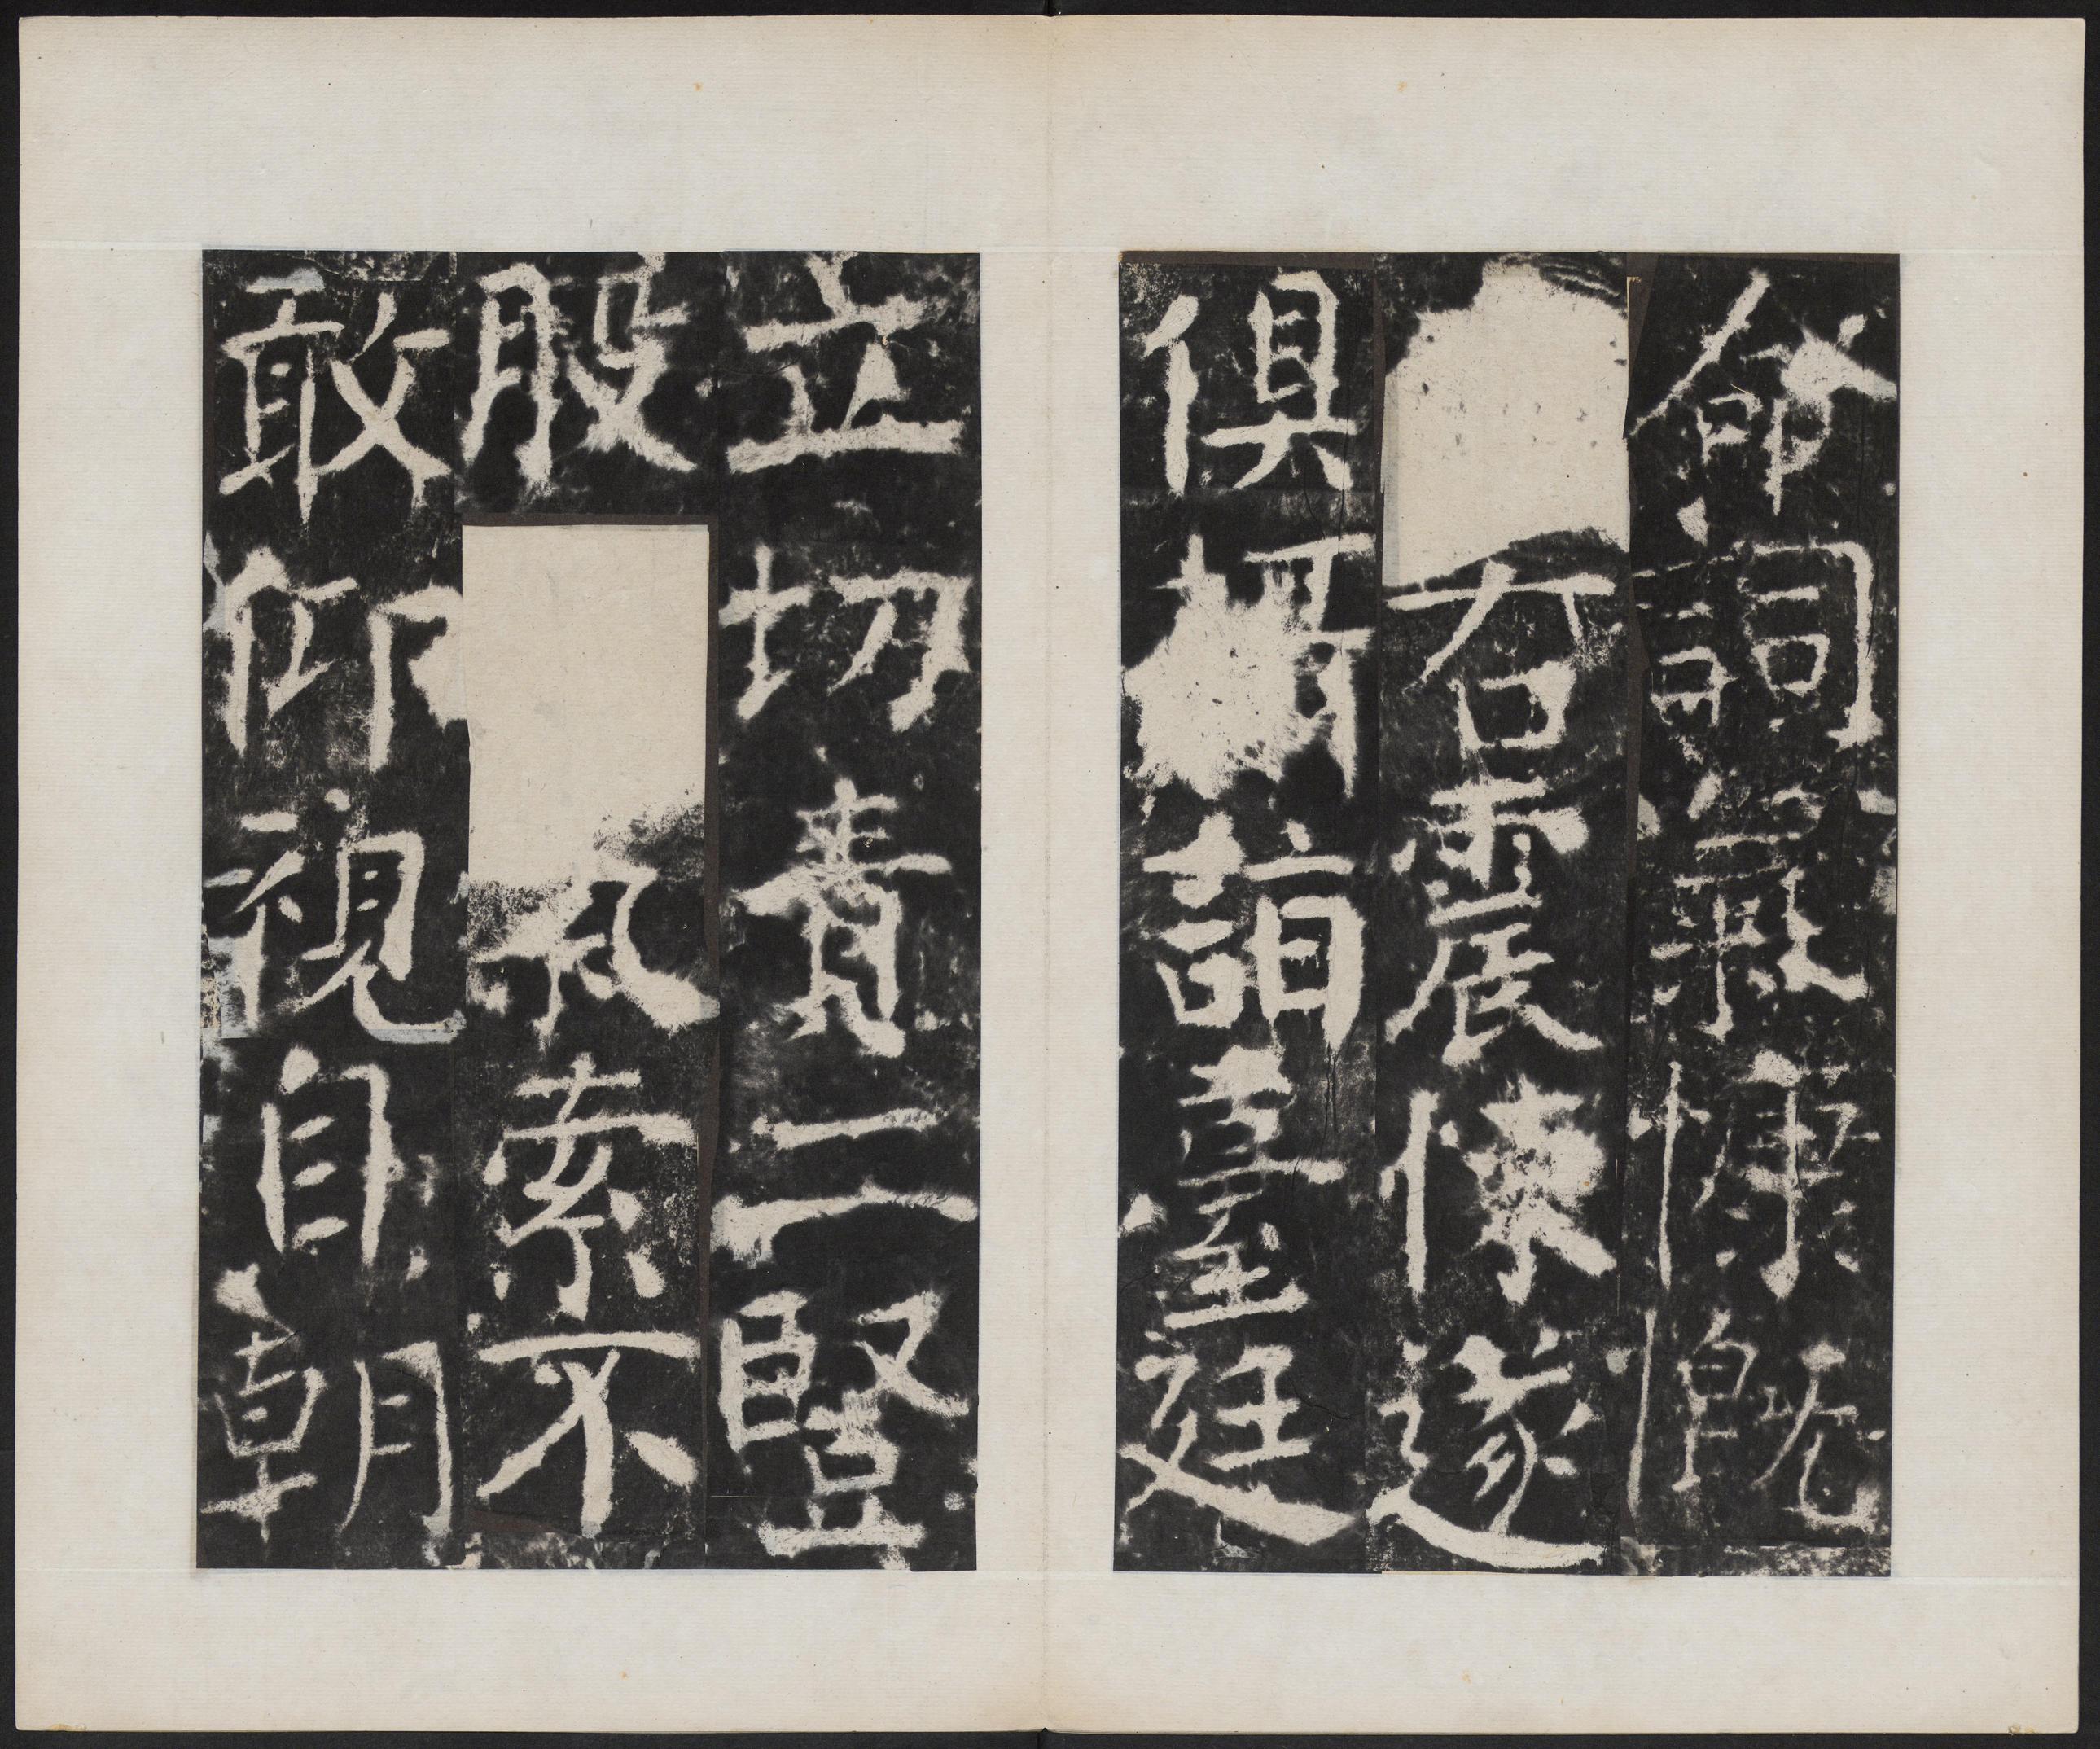 命詞氣慷慨
右震悚遂
俱攝詣臺廷
立切責二豎
股氣索不
敢仰視自朝